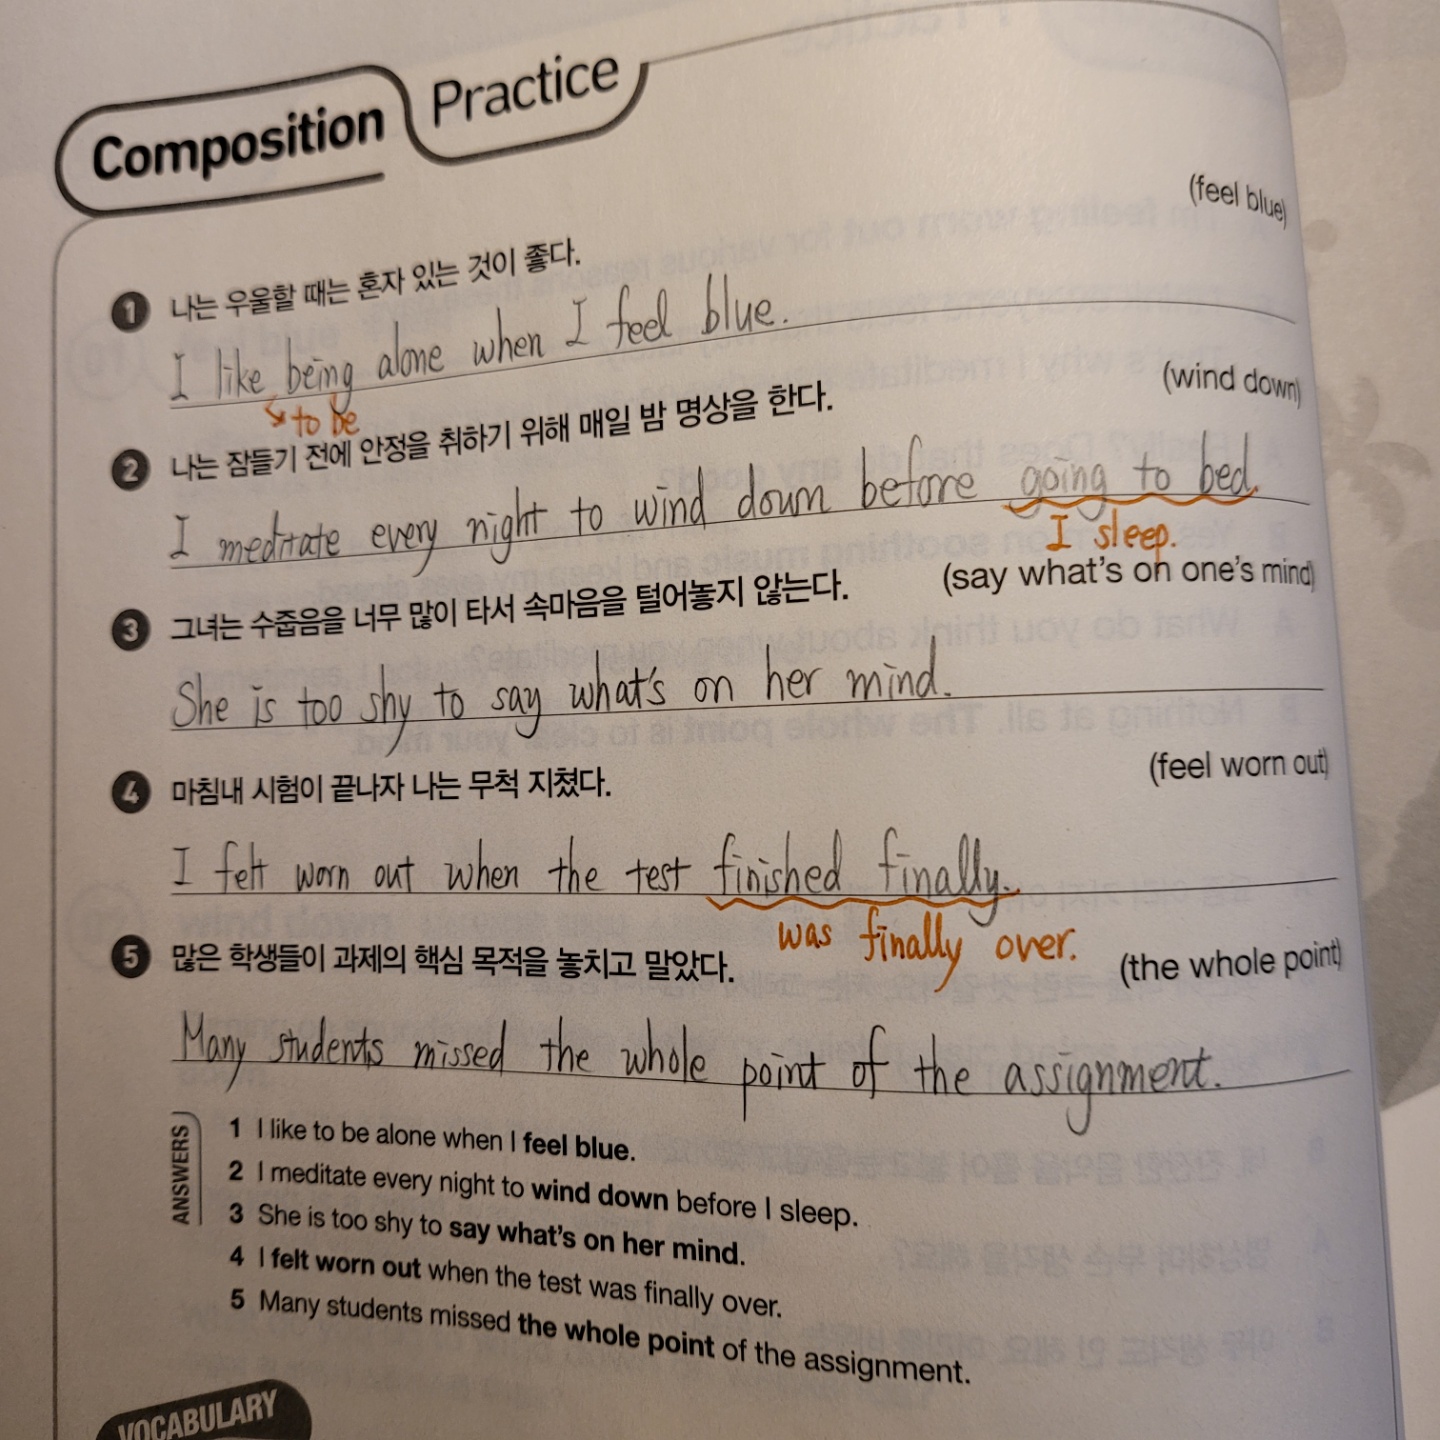 Composition Practice
(feel blue)
1 나는 우울할 때는 혼자 있는 것이 좋다.
I like being alone when I feel blue.
to be
(wind down)
2 나는 잠들기 전에 안정을 취하기 위해 매일 밤 명상을 한다.
I meditate every night to wind down before going to bed.
I sleep.
3 그녀는 수줍음을 너무 많이 타서 속마음을 털어놓지 않는다. (say what's on one's mind)
She is too shy to say what's on her mind.
4 마침내 시험이 끝나자 나는 무척 지쳤다. (feel worn out)
I felt worn out when the test finished finally.
was finally over.
5 많은 학생들이 과제의 핵심 목적을 놓치고 말았다. (the whole point)
Many students missed the whole point of the assignment.
ANSWERS
1 I like to be alone when I feel blue.
2 I meditate every night to wind down before I sleep.
3 She is too shy to say what's on her mind.
4 I felt worn out when the test was finally over.
5 Many students missed the whole point of the assignment.
VOCABULARY